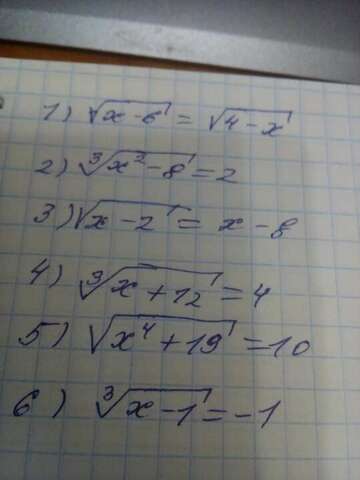 1) √(x-6) = √(4-x)
2) ∛(x²-8) = 2
3) √(x-2) = x-8
4) ∛(x+12) = 4
5) √(x⁴+19) = 10
6) ∛(x-1) = -1